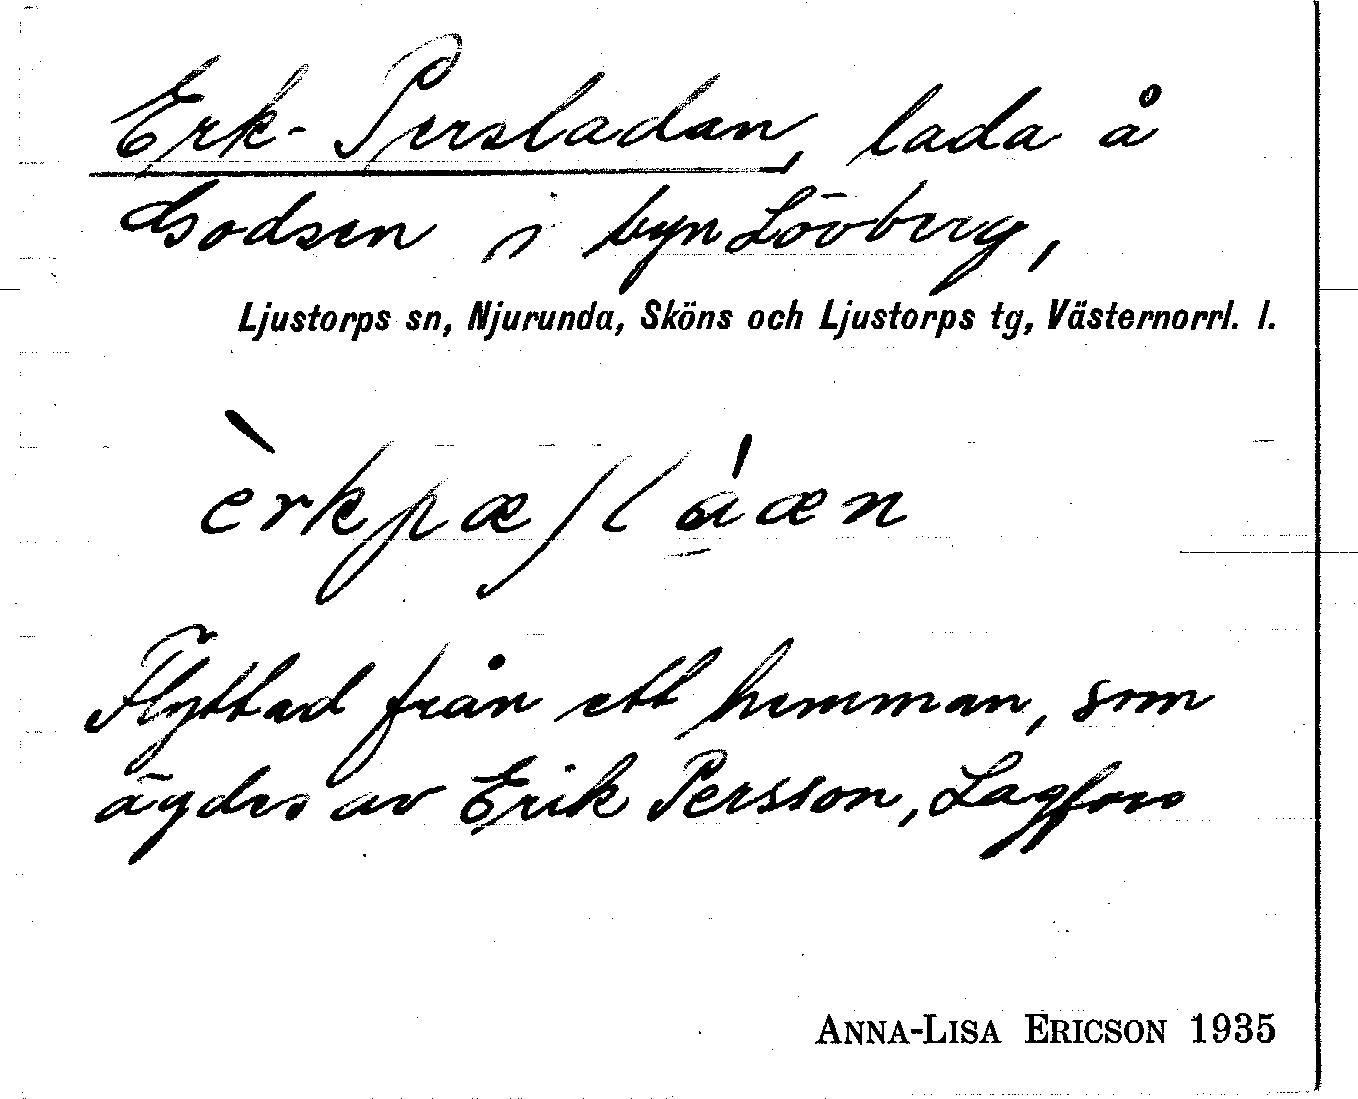 Erk-Persladan, lada å
Godsen i byn Lövberg,
Ljustorps sn, Njurunda, Sköns och Ljustorps tg, Västernorrl. l.
èrkpæʃláæn
Flyttad från ett hemman, som
ägdes av Erik Persson, Lagfors
ANNA-LISA ERICSON 1935